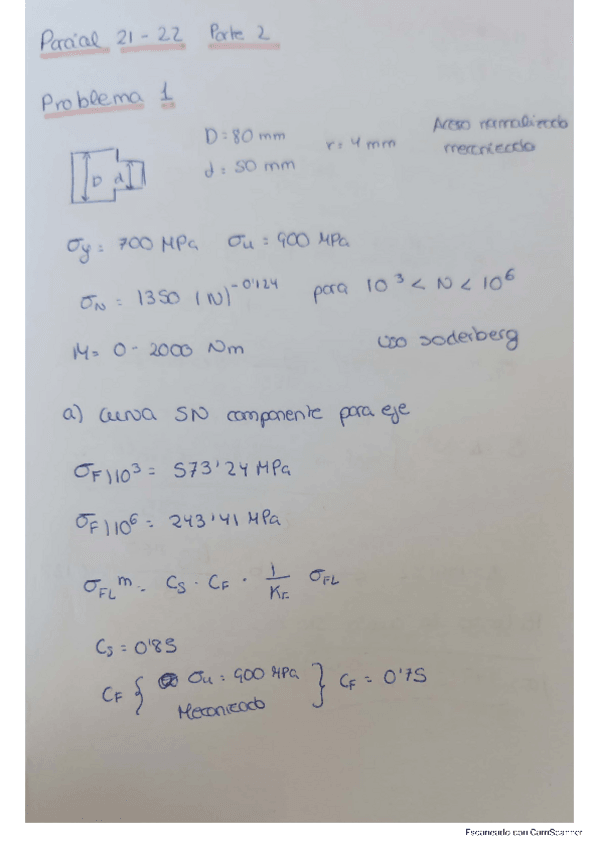 Parcial 21-22 Parte 2
Problema 1
D = 80 mm
d = 50 mm
r = 4 mm
Acero normalizado
mecanizado
D d
σy = 700 MPa σu = 900 MPa
σN = 1350 (N)^-0'124 para 10^3 < N < 10^6
M = 0 - 2000 Nm uso Soderberg
a) curva SN componente para eje
σF)10^3 = 573'24 MPa
σF)10^6 = 243'41 MPa
σFL^m = Cs · CF · 1/KF σFL
Cs = 0'85
CF { σu = 900 MPa
Mecanizado } CF = 0'75
Escaneado con CamScanner